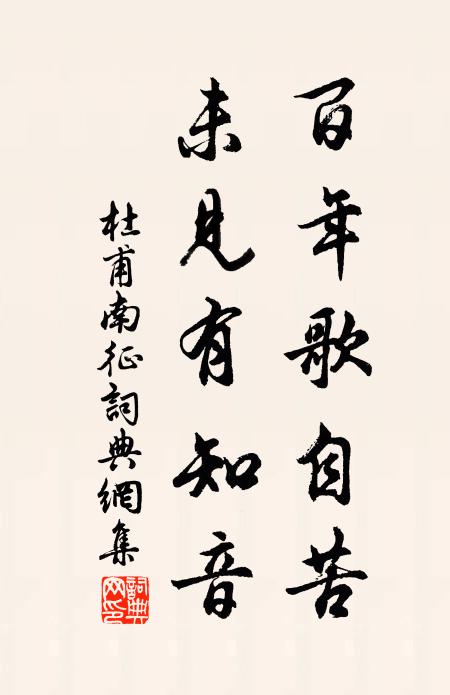 百年歌自苦
未見有知音
杜甫南征詞典網集
詞典網印